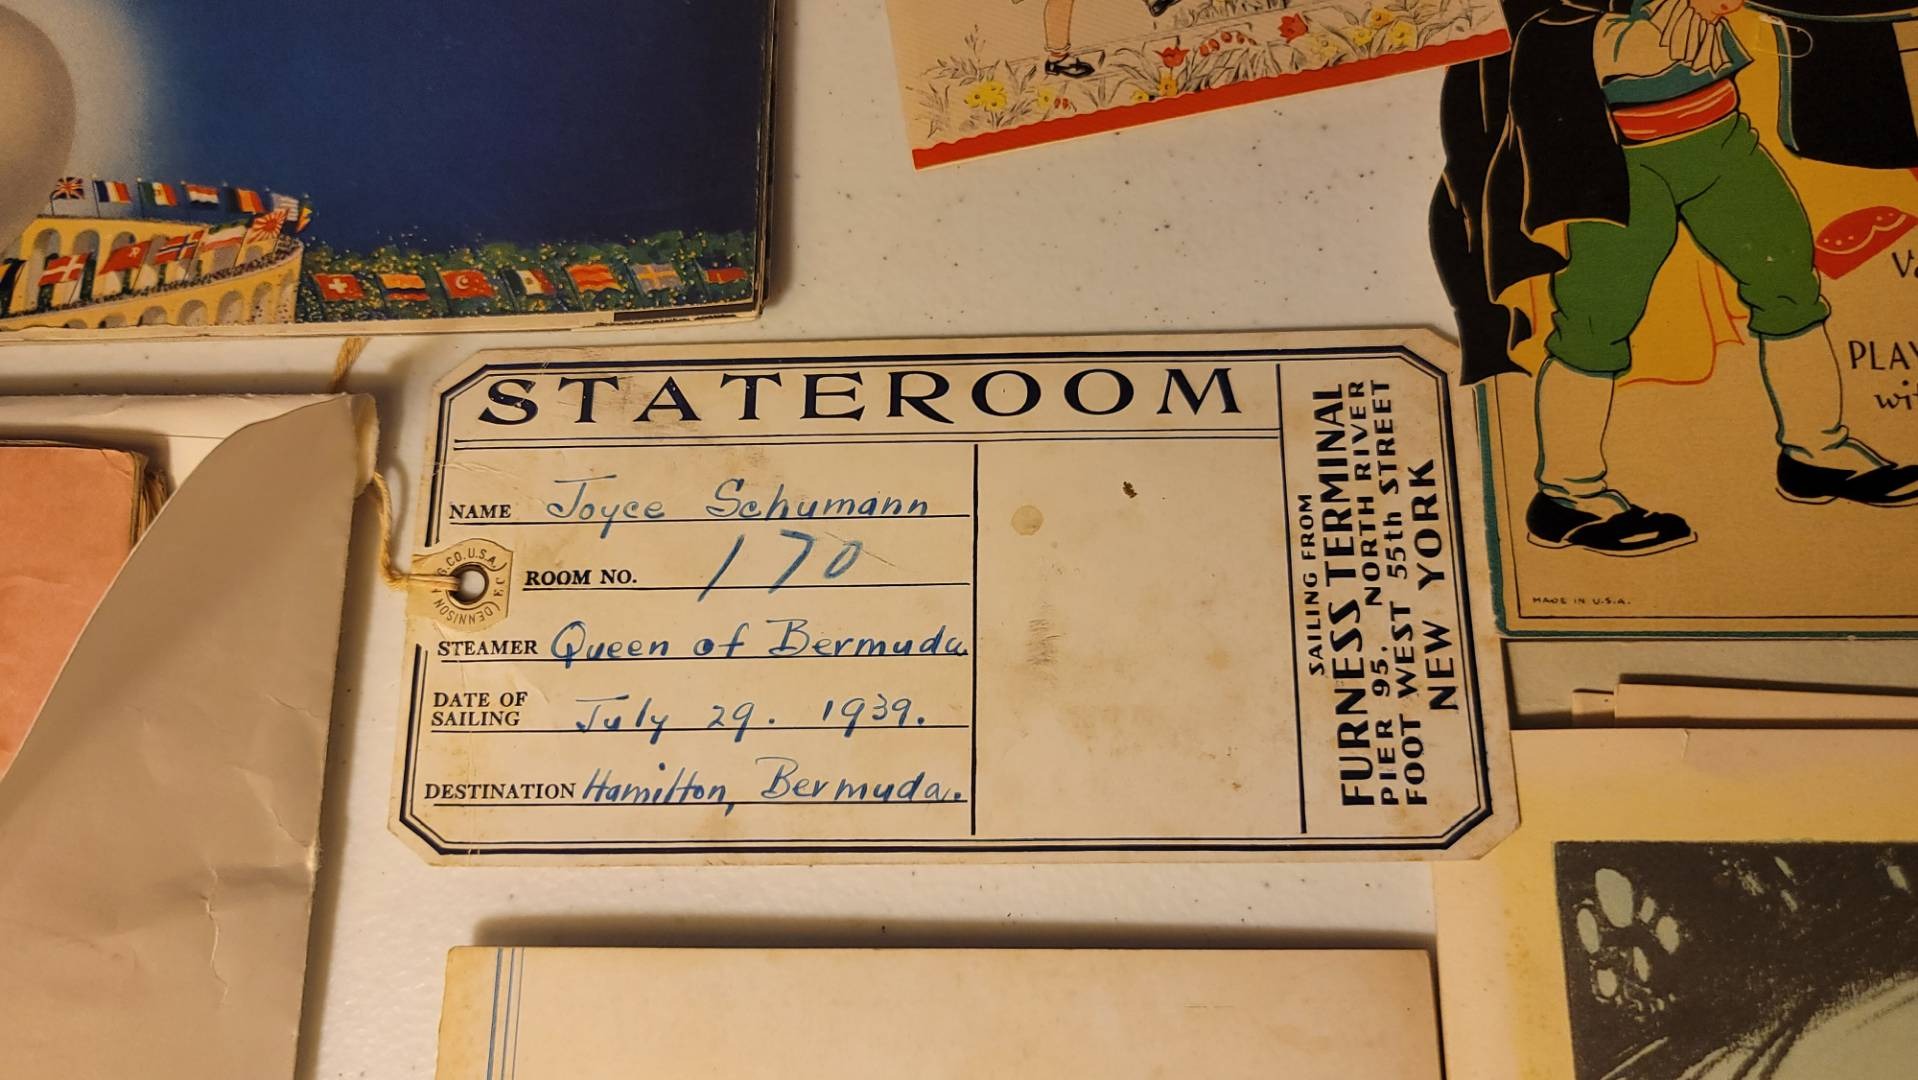 STATEROOM
NAME Joyce Schumann
ROOM NO. 170
STEAMER Queen of Bermuda
DATE OF
SAILING July 29. 1939.
DESTINATION Hamilton, Bermuda.
SAILING FROM
FURNESS TERMINAL
PIER 95. NORTH RIVER
FOOT WEST 55th STREET
NEW YORK
G.CO.U.S.A.
DENNISON
PLAY
MADE IN U.S.A.